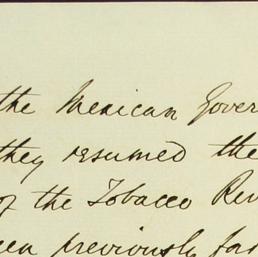 the Mexican Gover
they resumed the
of the Tobacco Rev
een previously far